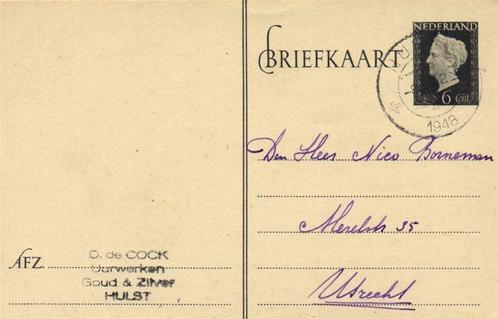 NEDERLAND
BRIEFKAART
6 cnt
1948
Den Heer Nico Borneman
Merelstr 35
Utrecht
AFZ.
D. de COCK
Uurwerken
Goud & Zilver
HULST